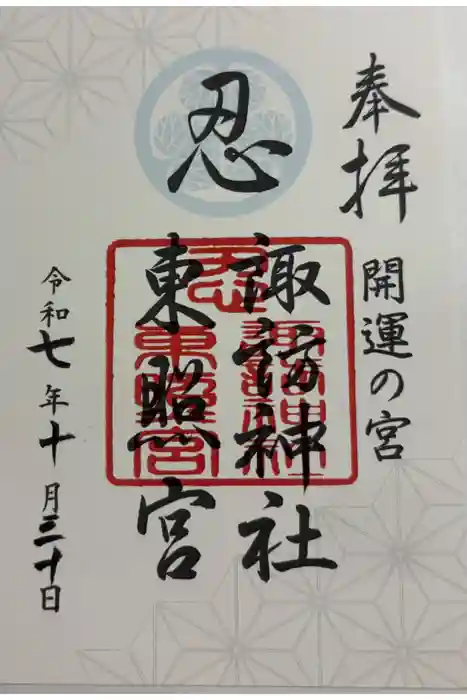 奉拝
開運の宮
忍
諏訪神社
東照宮
忍
諏訪神社
東照宮
令和七年十月三十日